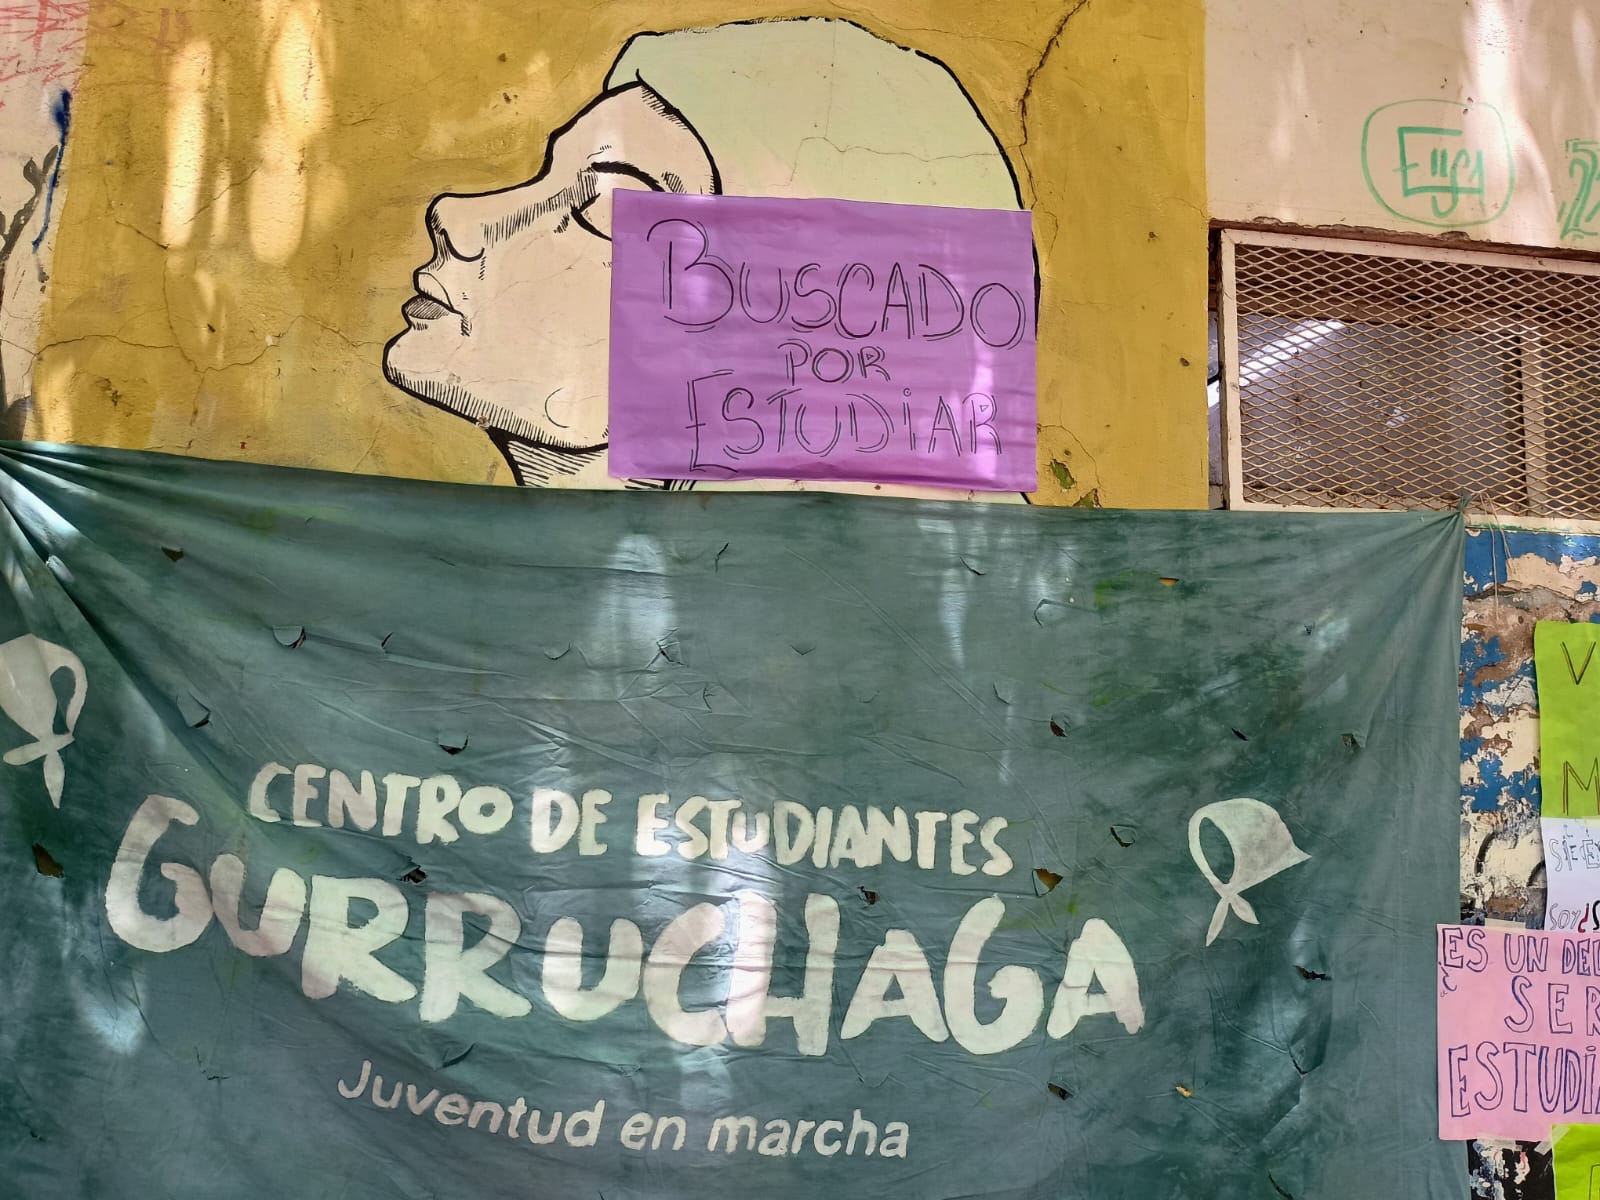 BUSCADO
POR
ESTUDiAR
CENTRO DE ESTUDIANTES
GURRUCHAGA
Juventud en marcha
V
M
SIE
SOY
ES UN DEL
SER
ESTUDi